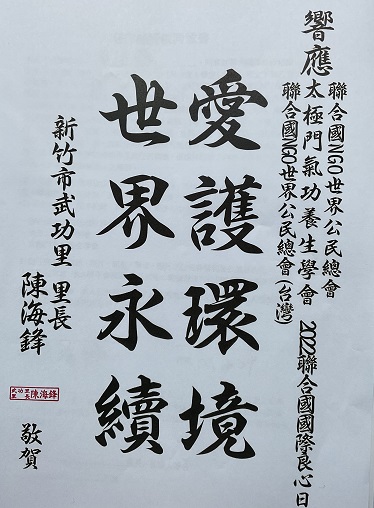 響應
聯合國NGO世界公民總會
太極門氣功養生學會
聯合國NGO世界公民總會(台灣)
2022聯合國國際良心日
愛護環境
世界永續
新竹市武功里 里長
陳海鋒
武功里 里長 陳海鋒
敬賀